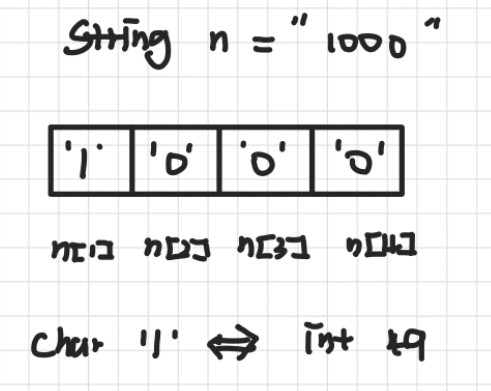 String n = "1000"
'1' '0' '0' '0'
n[1] n[2] n[3] n[4]
char '1' ⇔ int 49